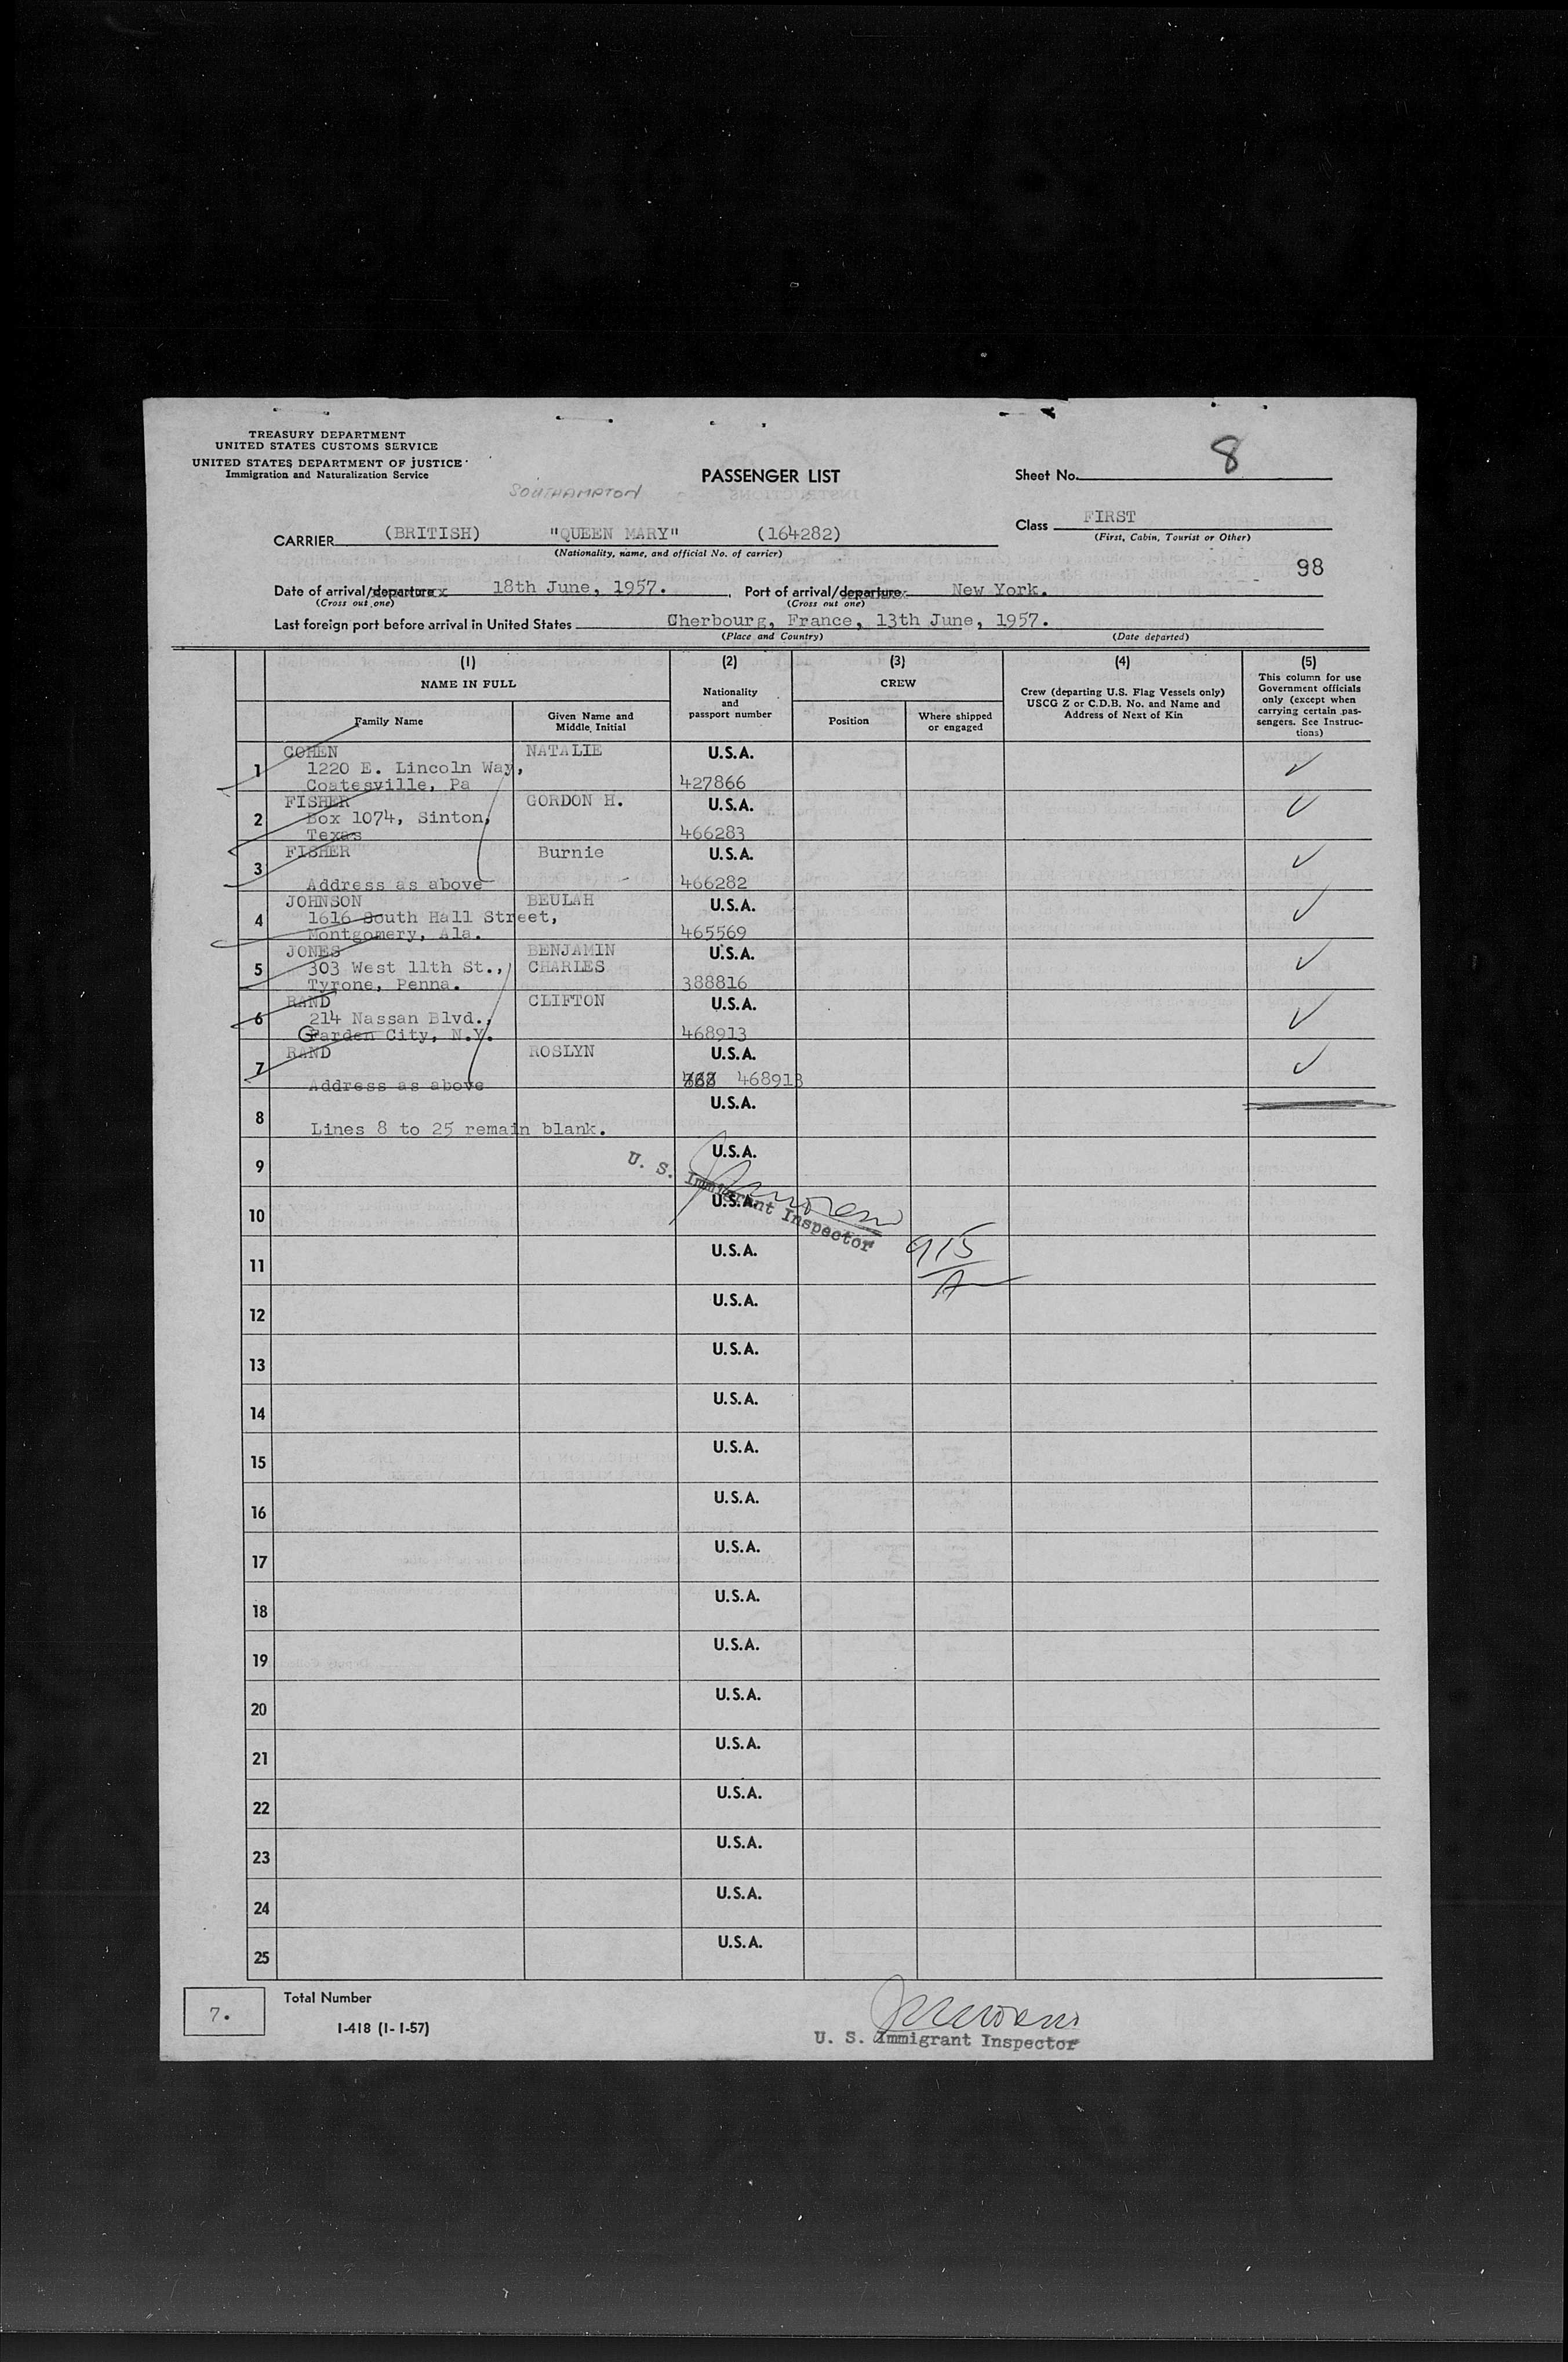 TREASURY DEPARTMENT
UNITED STATES CUSTOMS SERVICE
UNITED STATES DEPARTMENT OF JUSTICE
Immigration and Naturalization Service
PASSENGER LIST
Sheet No. 8
SOUTHAMPTON
Class FIRST
(First, Cabin, Tourist or Other)
CARRIER (BRITISH) "QUEEN MARY" (164282)
(Nationality, name, and official No. of carrier)
98
Date of arrival/departure 18th June, 1957. Port of arrival/departure New York.
(Cross out one) (Cross out one)
Last foreign port before arrival in United States Cherbourg, France, 13th June, 1957.
(Place and Country) (Date departed)
(1) (2) (3) (4) (5)
NAME IN FULL
Family Name
Given Name and
Middle Initial
Nationality
and
passport number
CREW
Position
Where shipped
or engaged
Crew (departing U.S. Flag Vessels only)
USCG Z or C.D.B. No. and Name and
Address of Next of Kin
This column for use
Government officials
only (except when
carrying certain pas-
sengers. See Instruc-
tions)
COHEN NATALIE U.S.A.
1 1220 E. Lincoln Way,
Coatesville, Pa 427866
FISHER GORDON H. U.S.A.
2 Box 1074, Sinton,
Texas 466283
FISHER Burnie U.S.A.
3
Address as above 466282
JOHNSON BEULAH U.S.A.
4 1616 South Hall Street,
Montgomery, Ala. 465569
JONES BENJAMIN U.S.A.
5 303 West 11th St., CHARLES
Tyrone, Penna. 388816
RAND CLIFTON U.S.A.
6 214 Nassan Blvd.,
Garden City, N.Y. 468913
RAND ROSLYN U.S.A.
7
Address as above 468913
8 U.S.A.
Lines 8 to 25 remain blank.
9 U.S.A.
U. S. Immigrant Inspector
10 U.S.A.
11 U.S.A.
915
12 U.S.A.
13 U.S.A.
14 U.S.A.
15 U.S.A.
16 U.S.A.
17 U.S.A.
18 U.S.A.
19 U.S.A.
20 U.S.A.
21 U.S.A.
22 U.S.A.
23 U.S.A.
24 U.S.A.
25 U.S.A.
7. Total Number
I-418 (1-1-57)
U. S. Immigrant Inspector